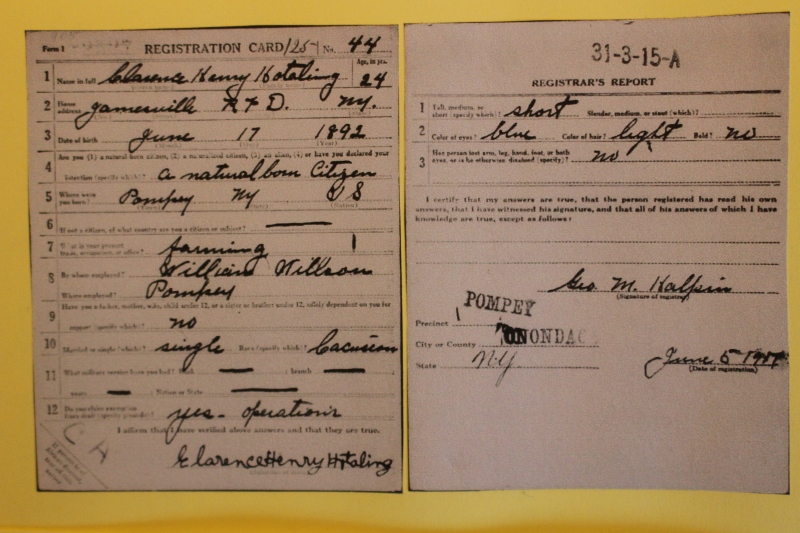 Form 1 REGISTRATION CARD 125 No. 44
1 Name in full Clarence Henry Hotaling Age, in yrs. 24
2 Home address Jamesville R.F.D. N.Y.
3 Date of birth June 17 1892
4 Are you (1) a natural born citizen, (2) a naturalized citizen, (3) an alien, (4) or have you declared your
intention (specify which)? a natural born Citizen
5 Where were you born? Pompey NY US
6 If not a citizen, of what country are you a citizen or subject?
7 What is your present trade, occupation, or office? farming 1
8 By whom employed? William Willson
Where employed? Pompey
9 Have you a father, mother, wife, child under 12, or a sister or brother under 12, solely dependent on you for
support (specify which)? no
10 Married or single (which)? single Race (specify which)? Cacusion
11 What military service have you had? Rank branch
years Nation or State
12 Do you claim exemption from draft (specify grounds)? yes - operations
I affirm that I have verified above answers and that they are true.
C A
Clarence Henry Hotaling
31-3-15-A
REGISTRAR'S REPORT
1 Tall, medium, or short (specify which)? short Slender, medium, or stout (which)?
2 Color of eyes? blue Color of hair? light Bald? no
3 Has person lost arm, leg, hand, foot, or both
eyes, or is he otherwise disabled (specify)? no
I certify that my answers are true, that the person registered has read his own
answers, that I have witnessed his signature, and that all of his answers of which I have
knowledge are true, except as follows:
Geo. M. Halpin
(Signature of registrar)
Precinct 1 POMPEY
City or County ONONDAG
State N.Y.
June 5 1917
(Date of registration)